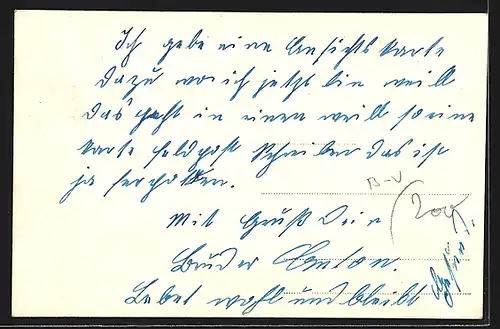 Ich gebe eine Ansichtskarte
dazu wo ich jetzt bin weill
das geht in einen weill so eine
karte feldpost schreiben das ist
ja ferboten.
B-V
Mit Gruß Dein
Bruder Anton.
Lebet wohl und bleibt gesund.